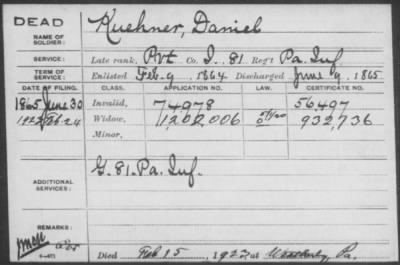 DEAD
NAME OF SOLDIER: Kuehner, Daniel
SERVICE: Late rank, Pvt Co. I, 81 Reg't Pa. Inf.
TERM OF SERVICE: Enlisted Feb. 9, 1864 Discharged June 9, 1865
DATE OF FILING. CLASS. APPLICATION NO. LAW. CERTIFICATE NO.
1865 June 30 Invalid, 74978 56,497
1922 Feb 24 Widow, 1,202,006 932,736
Minor,
ADDITIONAL SERVICES: G. 81. Pa. Inf.
REMARKS:
Died Feb 15, 1922 at Weatherly, Pa.